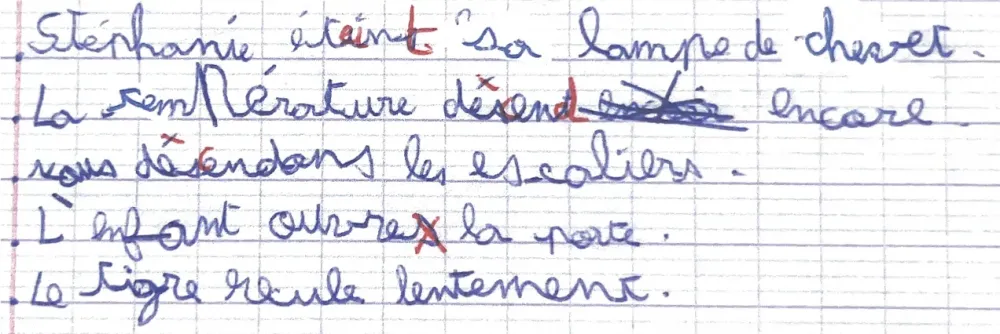 . Stéphanie éteint sa lampe de chevet.
. La température déscend encore.
. nous déscendons les escaliers.
. L'enfant ouvre la porte.
. Le tigre recule lentement.